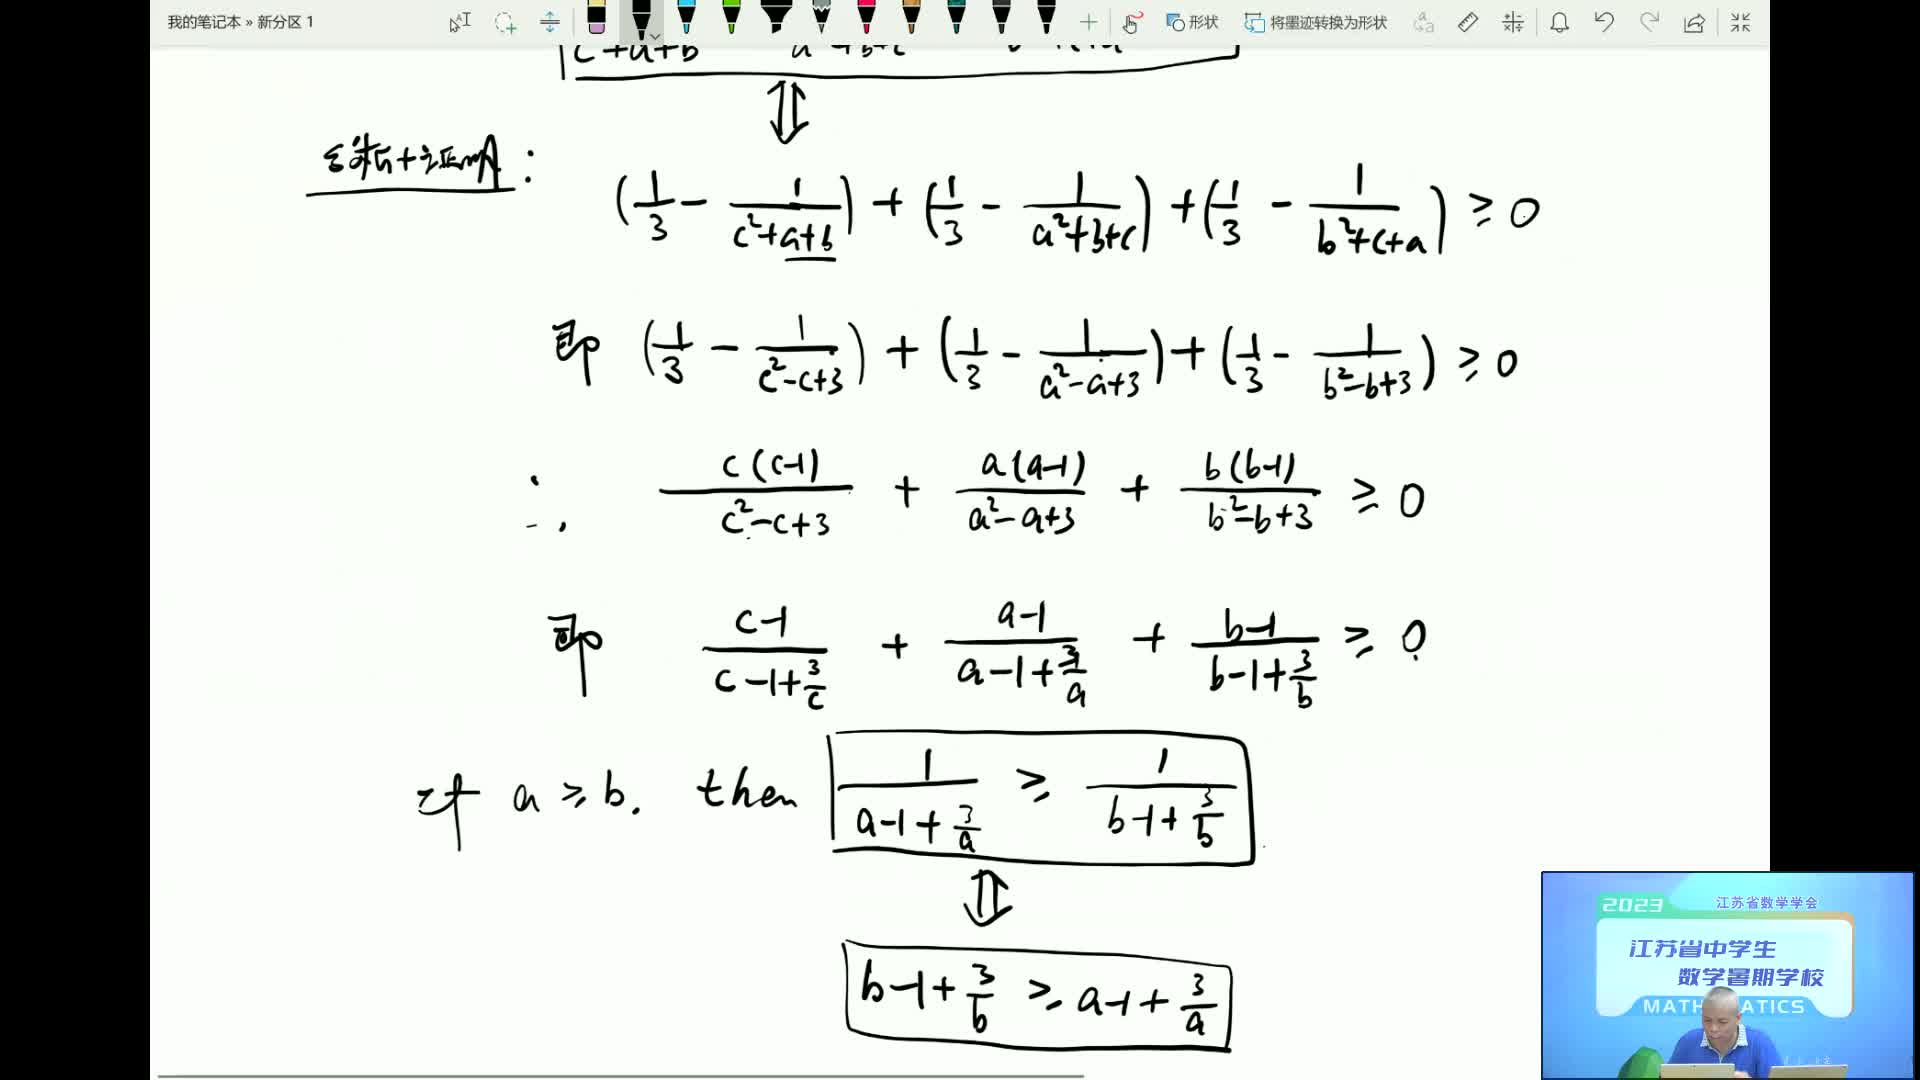 我的笔记本 » 新分区 1
形状
将墨迹转换为形状
c²+a+b a²+b+c b²+c+a
分析+证明:
(1/3 - 1/(c²+a+b)) + (1/3 - 1/(a²+b+c)) + (1/3 - 1/(b²+c+a)) ≥ 0
即 (1/3 - 1/(c²-c+3)) + (1/3 - 1/(a²-a+3)) + (1/3 - 1/(b²-b+3)) ≥ 0
∴ c(c-1)/(c²-c+3) + a(a-1)/(a²-a+3) + b(b-1)/(b²-b+3) ≥ 0
即 (c-1)/(c-1+3/c) + (a-1)/(a-1+3/a) + (b-1)/(b-1+3/b) ≥ 0
if a ≥ b. then 1/(a-1+3/a) ≥ 1/(b-1+3/b)
b-1+3/b ≥ a-1+3/a
2023
江苏省数学学会
江苏省中学生
数学暑期学校
MATHEMATICS